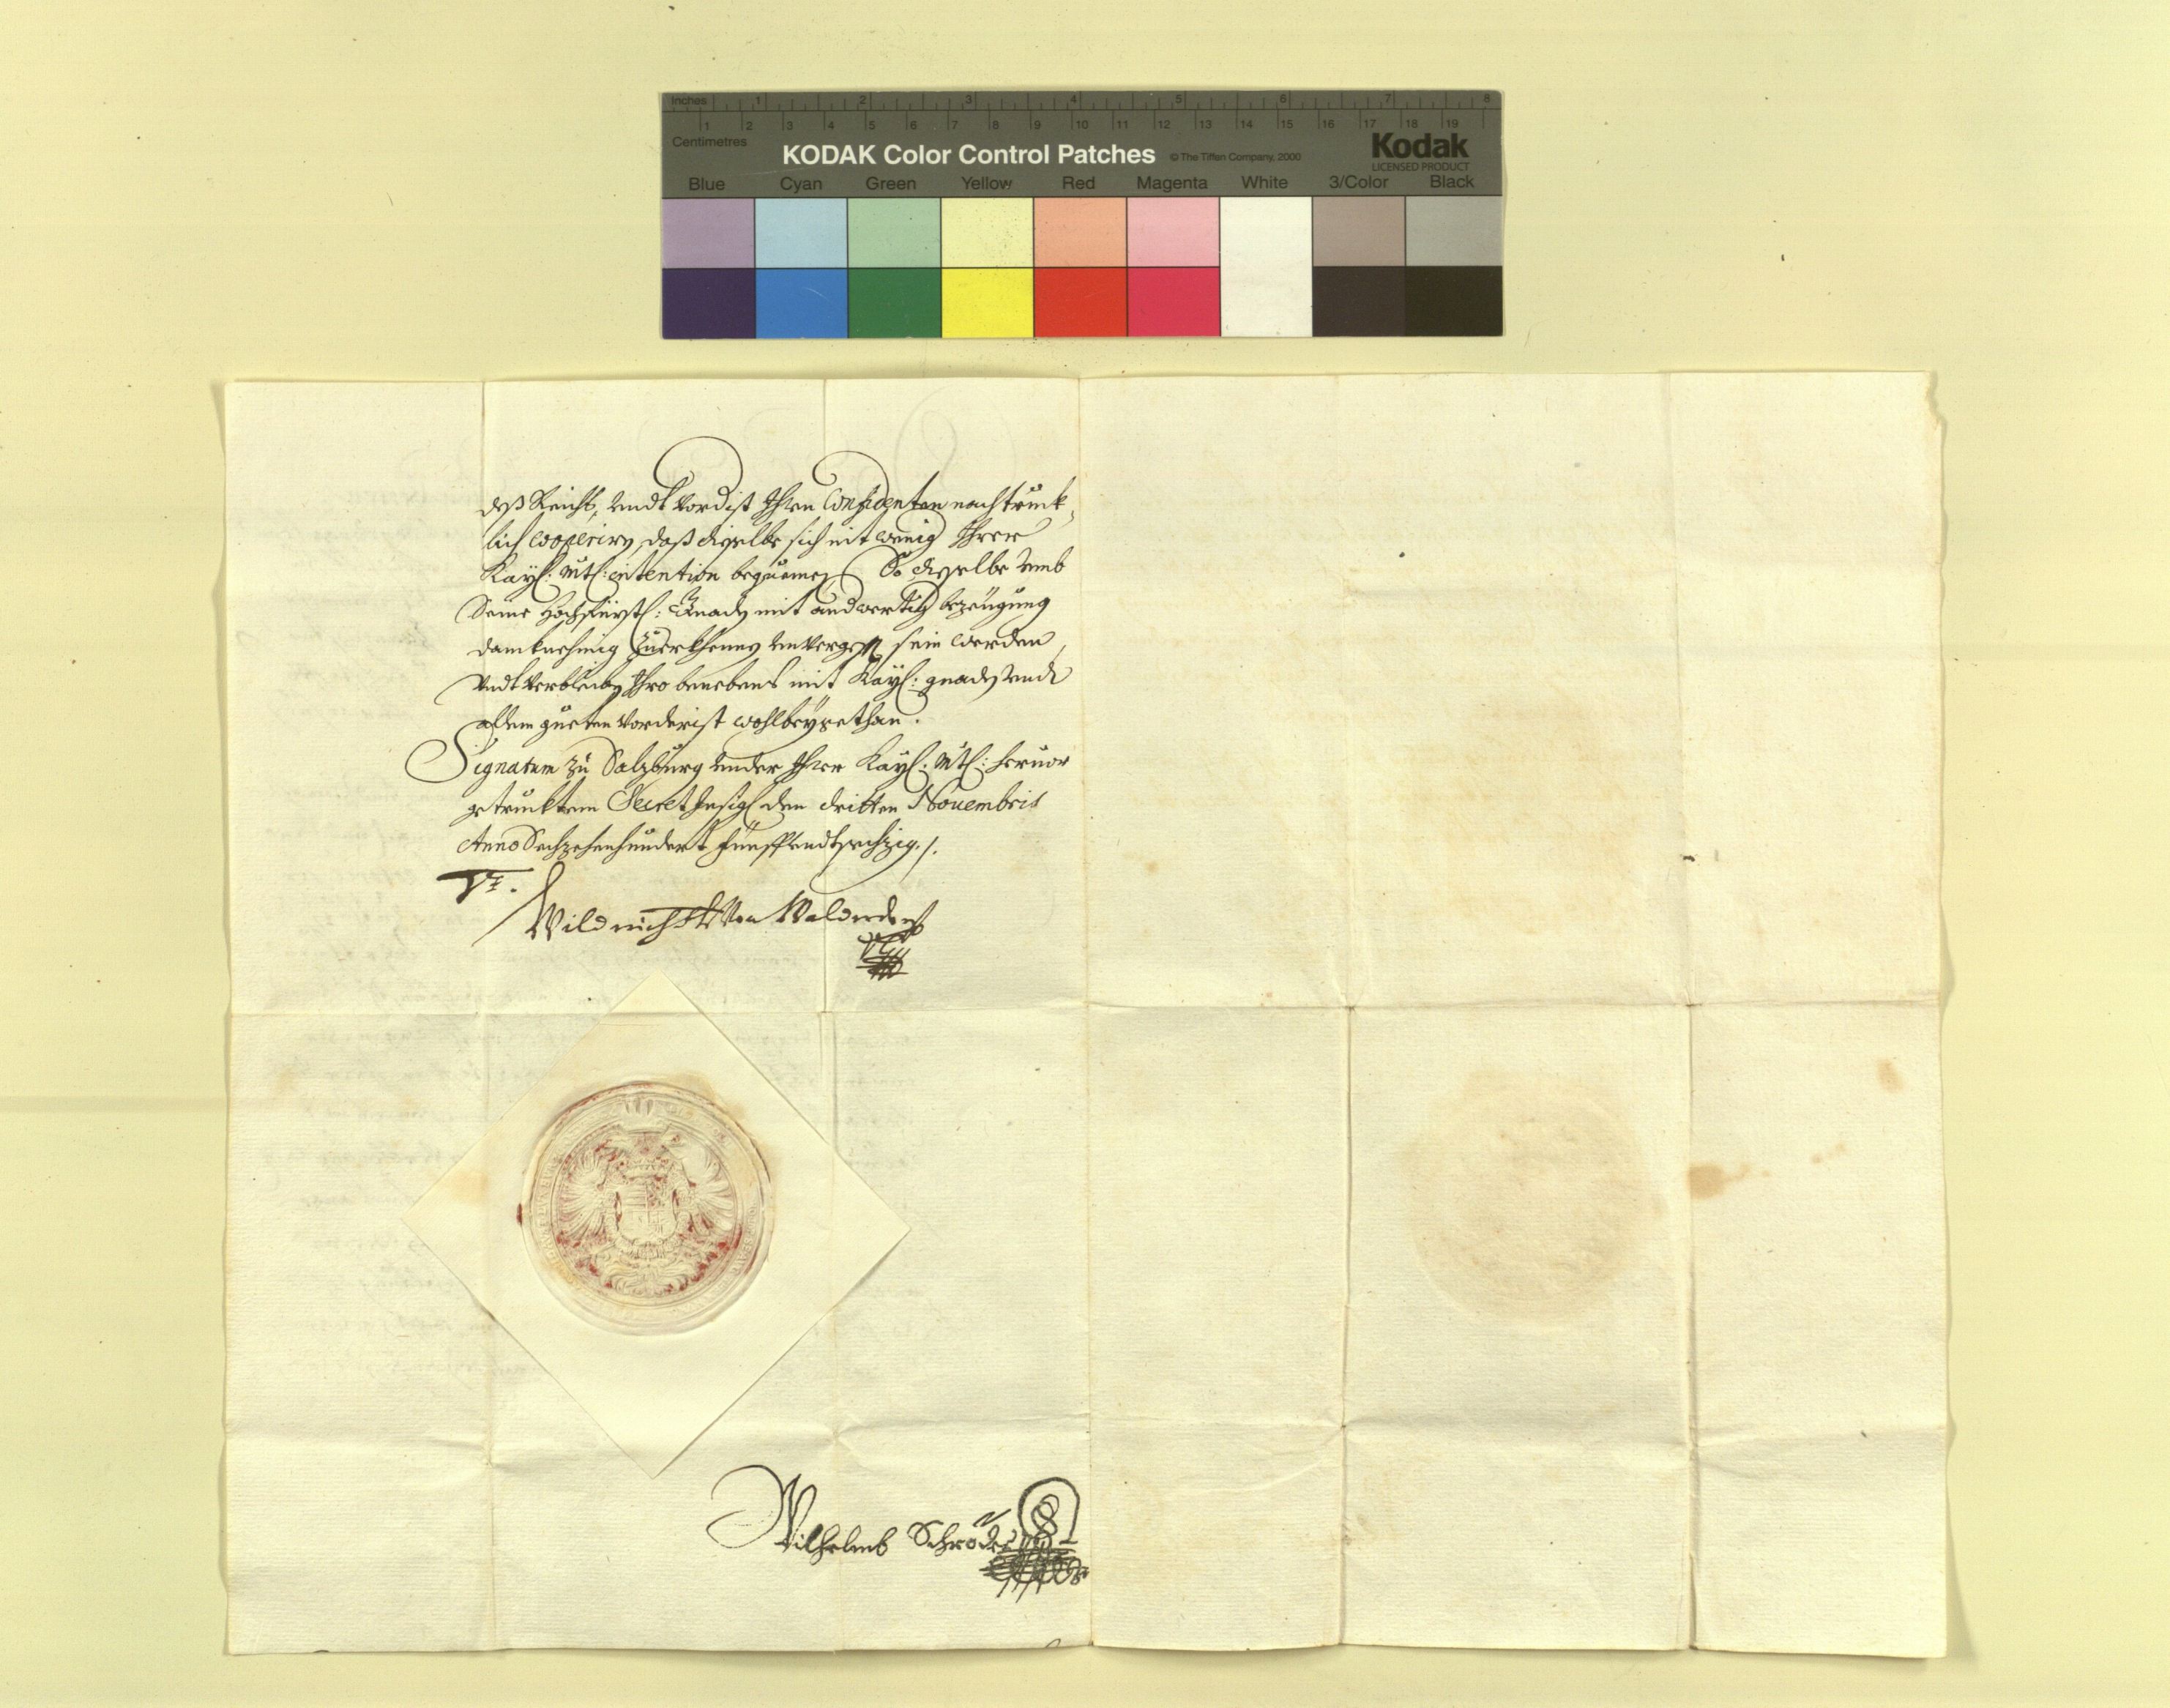 Inches 1 2 3 4 5 6 7 8
1 2 3 4 5 6 7 8 9 10 11 12 13 14 15 16 17 18 19
Centimetres
KODAK Color Control Patches © The Tiffen Company, 2000 Kodak
LICENSED PRODUCT
Blue Cyan Green Yellow Red Magenta White 3/Color Black
deß Reichs, undt vordist Ihren Confidenten nachtruck-
lich cooperirn, daß dieselbe sich mit wenig Ihrer
Kayl: Mtl: intention bequemen So dieselbe umb
Seine Hochfürstl: Gnaden mit andwertig bezeugung
danknehmig zuerkhennen unvergessen sein werden,
undt verbleiben Ihro benebens mit Kayl: gnaden undt
allem gueten vorderist wohlbeygethan.
Signatum zu Salzburg under Ihrer Kayl: Mtl: hervor
getrucktem Secret Insigl den dritten Novembris
Anno Sechzehenhundert fünffundtsechzig./.
Vt.
Wilderich von Walderdorff
Wilhelmb Schröder